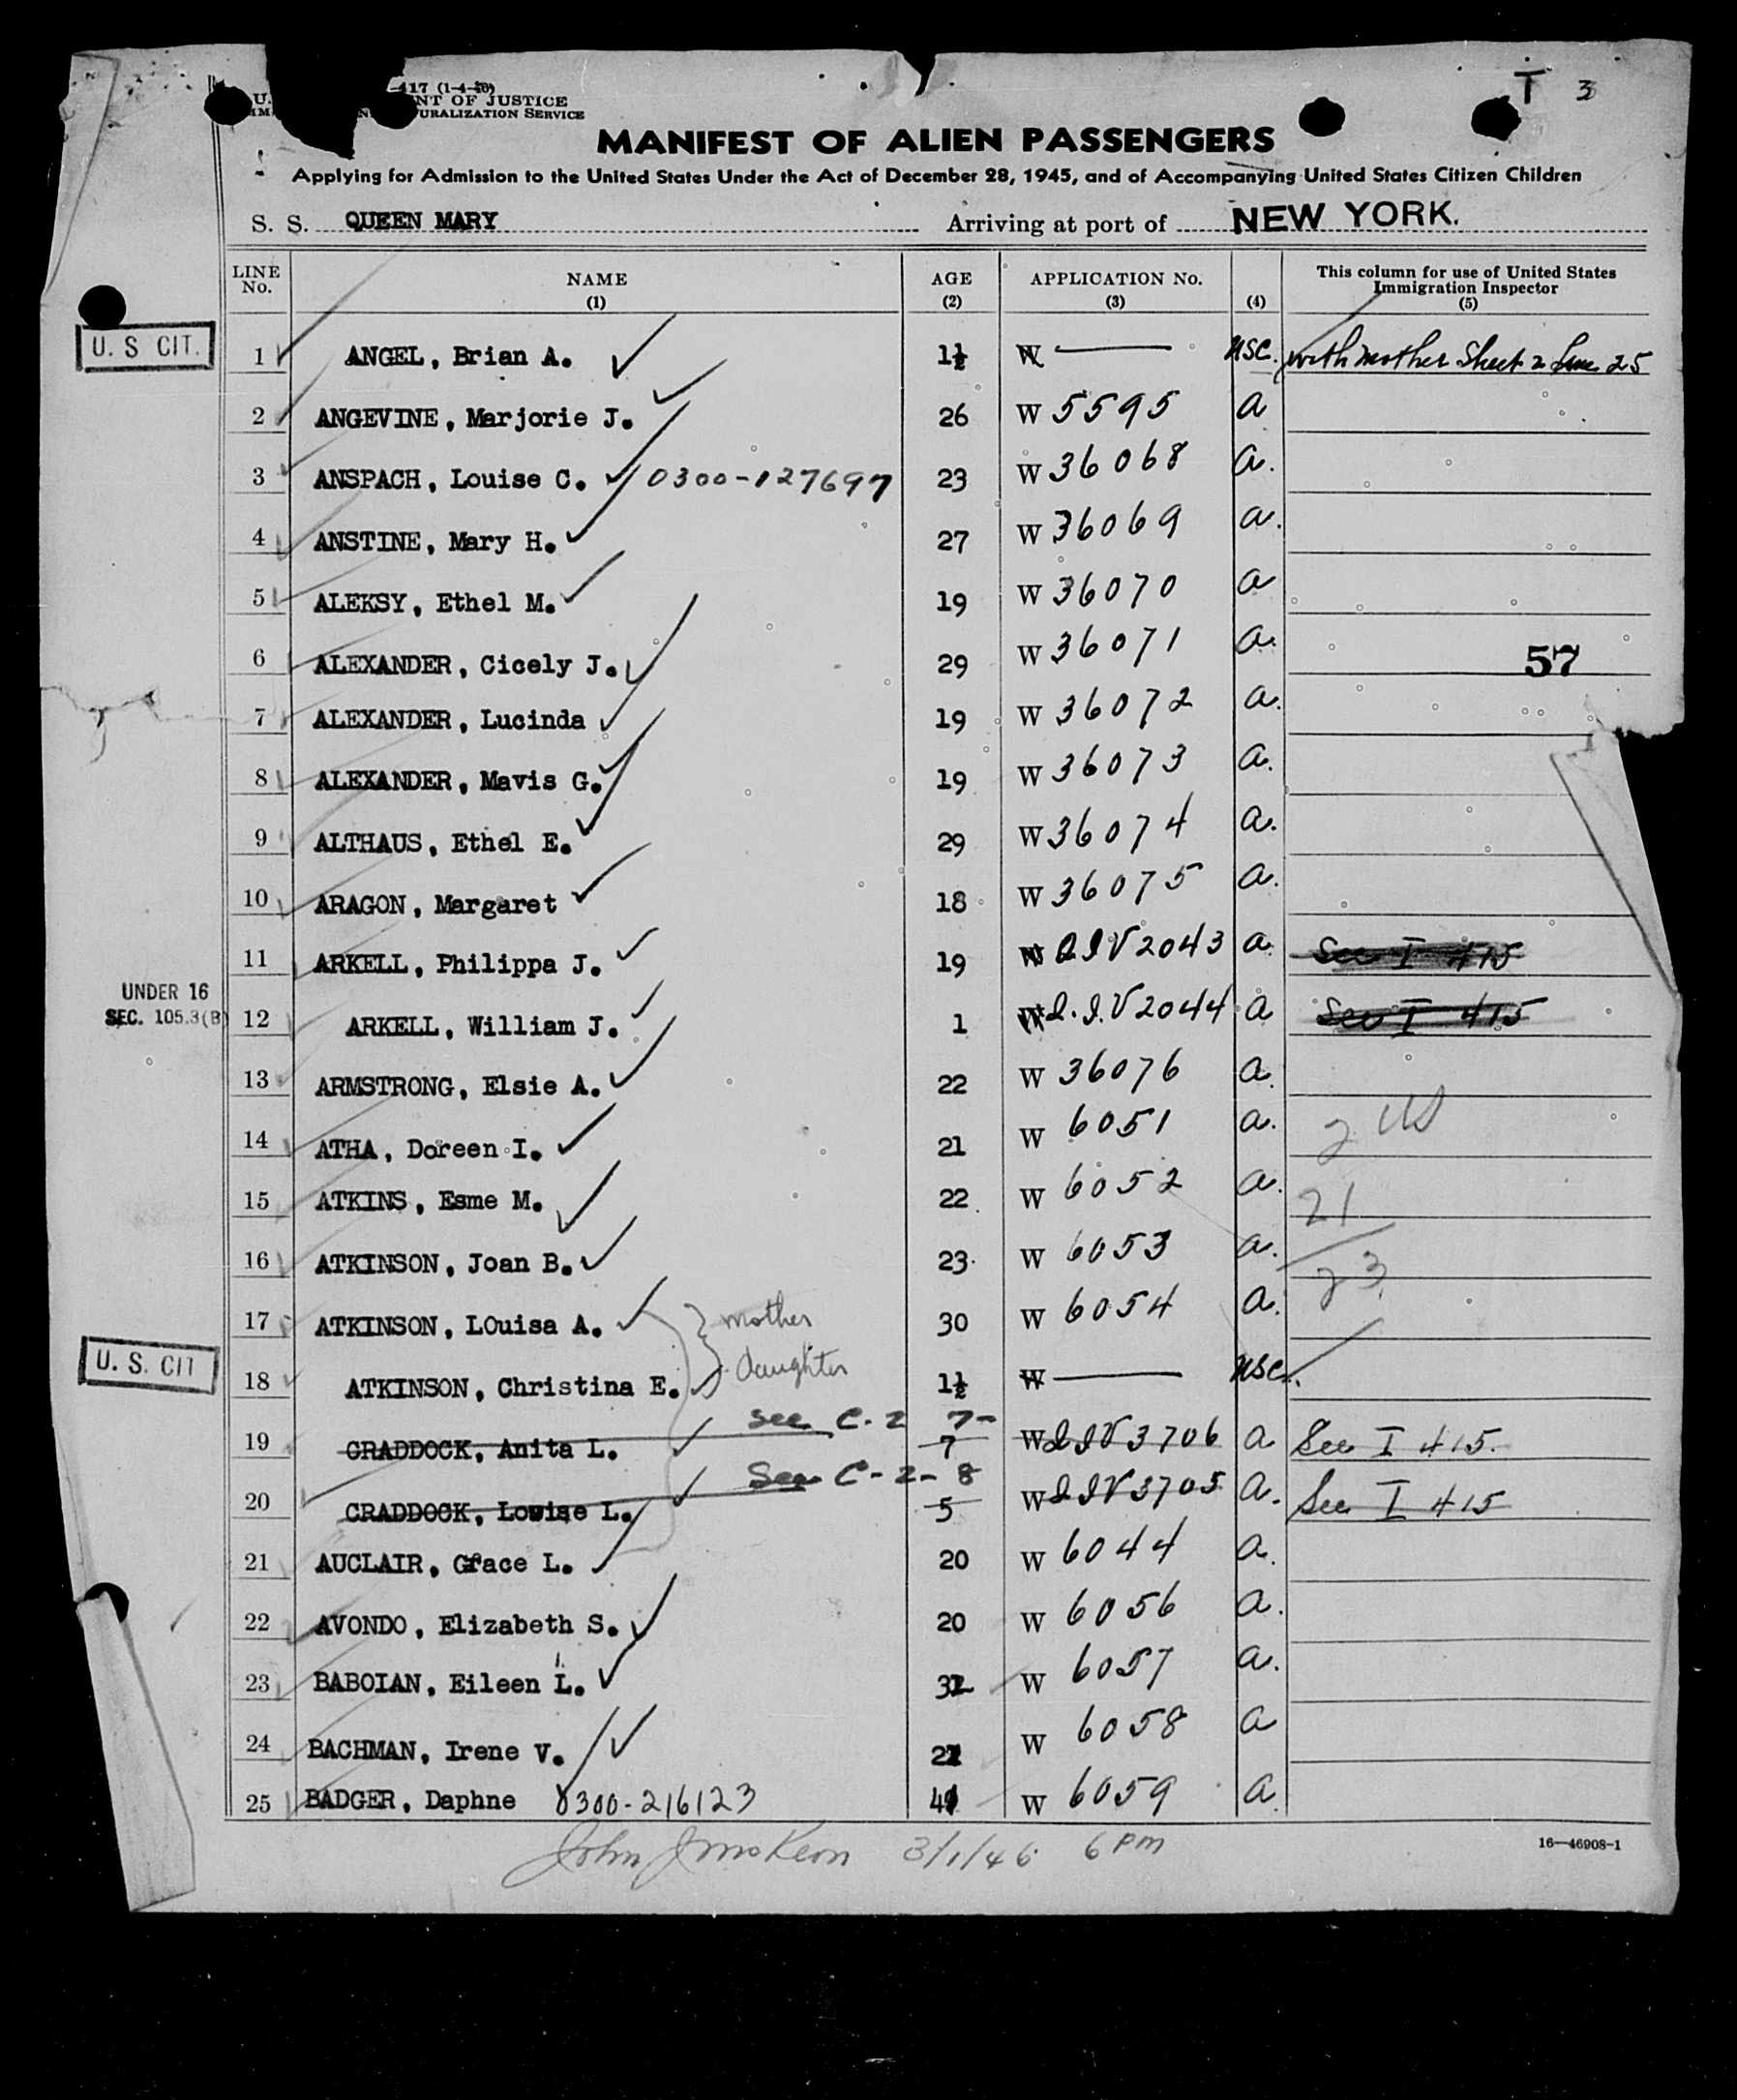 417 (1-4-46)
NT OF JUSTICE
URALIZATION SERVICE
T 3
MANIFEST OF ALIEN PASSENGERS
Applying for Admission to the United States Under the Act of December 28, 1945, and of Accompanying United States Citizen Children
S. S. QUEEN MARY Arriving at port of NEW YORK.
LINE No. NAME (1) AGE (2) APPLICATION No. (3) (4) This column for use of United States Immigration Inspector (5)
U. S CIT. 1 ANGEL, Brian A. 1½ W USC. with mother Sheet 2 Line 25
2 ANGEVINE, Marjorie J. 26 W 5595 a
3 ANSPACH, Louise C. 0300-127697 23 W 36068 a.
4 ANSTINE, Mary H. 27 W 36069 a.
5 ALEKSY, Ethel M. 19 W 36070 a
6 ALEXANDER, Cicely J. 29 W 36071 a. 57
7 ALEXANDER, Lucinda 19 W 36072 a.
8 ALEXANDER, Mavis G. 19 W 36073 a.
9 ALTHAUS, Ethel E. 29 W 36074 a.
10 ARAGON, Margaret 18 W 36075 a.
11 ARKELL, Philippa J. 19 W I.I.V 2043 a See I 415
UNDER 16
SEC. 105.3(B) 12 ARKELL, William J. 1 W I.I.V 2044 a See I 415
13 ARMSTRONG, Elsie A. 22 W 36076 a.
14 ATHA, Doreen I. 21 W 6051 a. 2 US
15 ATKINS, Esme M. 22 W 6052 a. 21
16 ATKINSON, Joan B. 23 W 6053 a. 23
17 ATKINSON, LOuisa A. mother 30 W 6054 a.
U. S. CIT 18 ATKINSON, Christina E. daughter 1½ W USC.
see C-2 7-
19 CRADDOCK, Anita L. 7 W I I V 3706 a. See I 415.
See C-2-8
20 CRADDOCK, Louise L. 5 W I I V 3705 a. See I 415
21 AUCLAIR, Grace L. 20 W 6044 a.
22 AVONDO, Elizabeth S. 20 W 6056 a.
23 BABOIAN, Eileen L. 32 W 6057 a.
24 BACHMAN, Irene V. 22 W 6058 a
25 BADGER, Daphne 0300-216123 41 W 6059 a.
John J McKeon 3/1/46 6 PM
16—46908-1